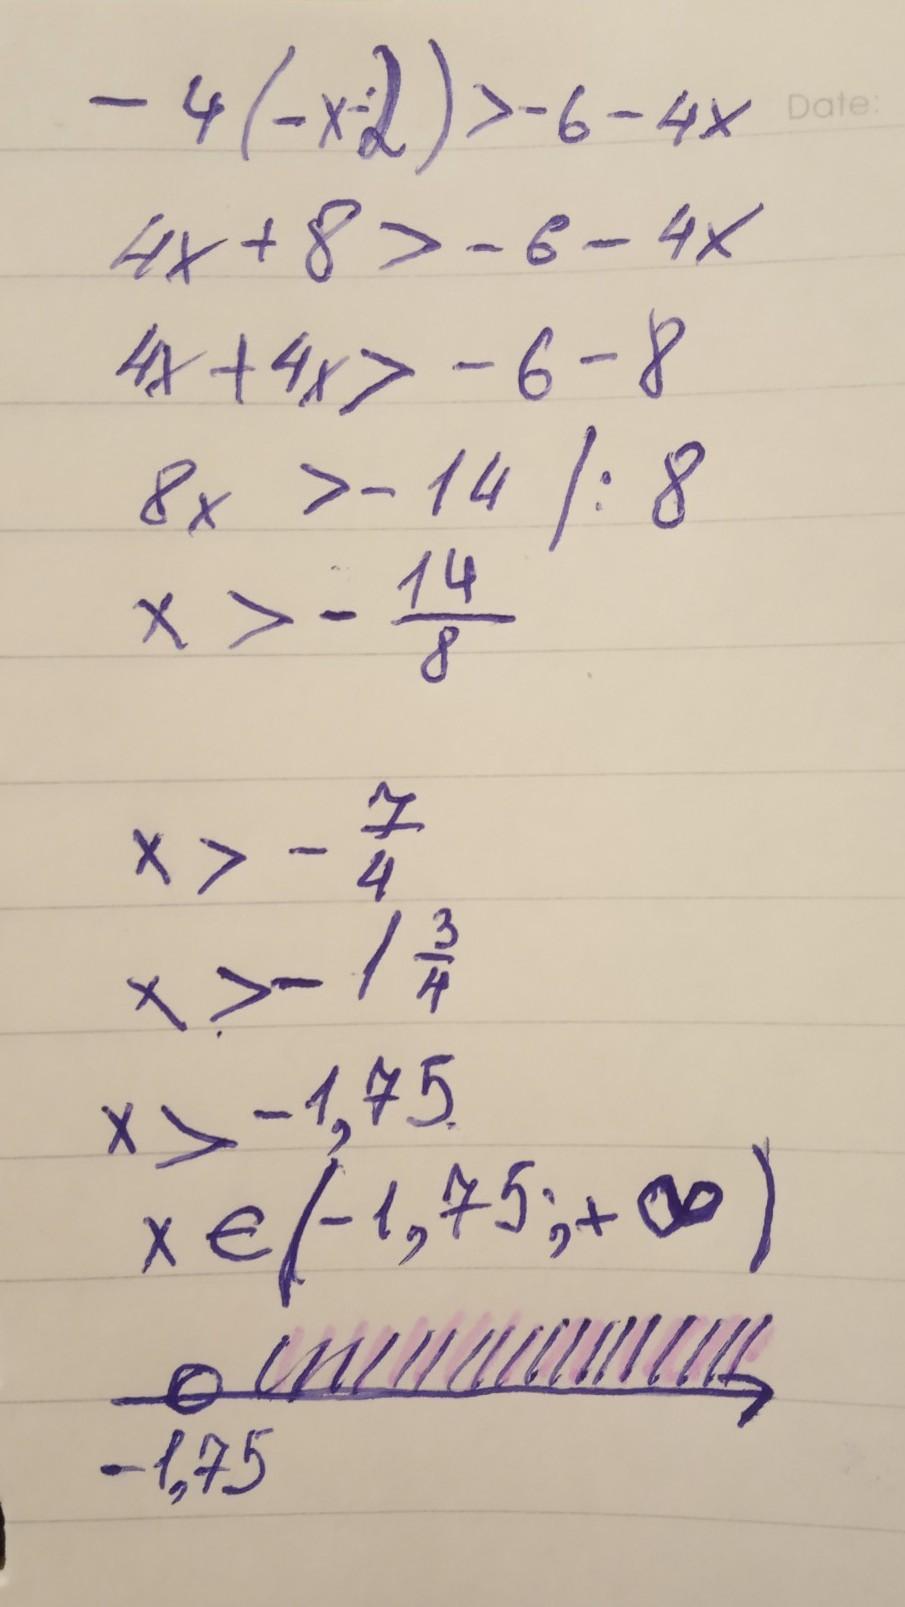 Date:
- 4(-x-2) > -6 - 4x
4x + 8 > - 6 - 4x
4x + 4x > - 6 - 8
8x > - 14 /: 8
x > - 14/8
x > - 7/4
x > - 1 3/4
x > -1,75
x ∈ (-1,75;+∞)
-1,75